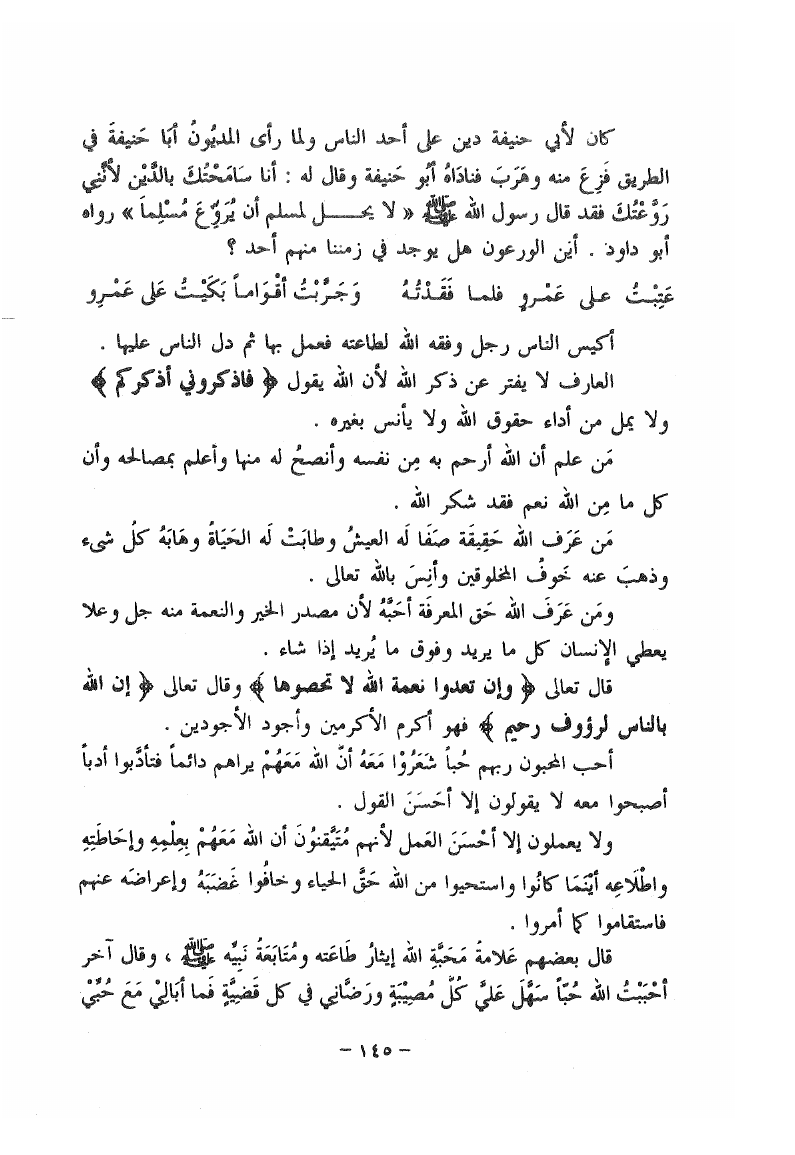 كان لأبي حنيفة دين على أحد الناس ولما رأى المديُونُ أبَا حَنيفةَ في
الطريق فَزِعَ منه وهَرَبَ فنادَاهُ أبُو حَنيفة وقال له : أنا سَامَحْتُكَ بالدَّيْن لأنَّنِي
رَوَّعْتُكَ فقد قال رسول الله ﷺ « لا يحـــــل لمسلم أن يُرَوِّعَ مُسْلِماً » رواه
أبو داود . أين الورعون هل يوجد في زمننا منهم أحد ؟
عَتِبْـتُ علـى عَمْـرٍو فلمـا فَقَـدْتُـهُ وَجَـرَّبْتُ أقْـوَامـاً بَكَيْـتُ عَلى عَمْـرِو
أكيس الناس رجل وفقه الله لطاعته فعمل بها ثم دل الناس عليها .
العارف لا يفتر عن ذكر الله لأن الله يقول ﴿ فاذكروني أذكركم ﴾
ولا يمل من أداء حقوق الله ولا يأنس بغيره .
مَن علم أن الله أرحم به مِن نفسه وأنصحُ له منها وأعلم بمصالحه وأن
كل ما مِن الله نعم فقد شكر الله .
مَن عَرَف الله حَقِيقَة صَفَا لَه العيشُ وطابَتْ لَه الحَيَاةُ وهَابَهُ كلُ شىء
وذهبَ عنه خَوفُ المخلوقين وأنِسَ بالله تعالى .
ومَن عَرَفَ الله حَق المعرفَة أحَبَّهُ لأن مصدر الخير والنعمة منه جل وعلا
يعطي الإنسان كل ما يريد وفوق ما يُريد إذا شاء .
قال تعالى ﴿ وإن تعدوا نعمة الله لا تحصوها ﴾ وقال تعالى ﴿ إن الله
بالناس لرؤوف رحيم ﴾ فهو أكرم الأكرمين وأجود الأجودين .
أحب المحبون ربهم حُباً شَعَرُوْا مَعَهُ أنّ الله مَعَهُمْ يراهم دائماً فتأدَّبوا أدباً
أصبحوا معه لا يقولون إلا أحَسَنَ القول .
ولا يعملون إلا أحْسَنَ العَمل لأنهم مُتَيَّقِنُوْنَ أن الله مَعَهُمْ بِعِلْمِهِ وإحَاطَتِهِ
واطْلَاعِه أيْنَمَا كانُوا واستحيوا من الله حَقَّ الحياء وخافُوا غَضَبَهُ وإعراضَه عنهم
فاستقاموا كما أمروا .
قال بعضهم عَلامةُ مَحَبَّةِ الله إيثارُ طَاعَته ومُتَابَعَةُ نَبِيِّه ﷺ ، وقال آخر
أحْبَبْتُ الله حُبّاً سَهَّلَ عَليَّ كُلَّ مُصِيْبَةٍ ورَضَّانِي في كل قَضِيَّةٍ فَما أبَالِيْ مَعَ حُبِّيْ
– ١٤٥ –